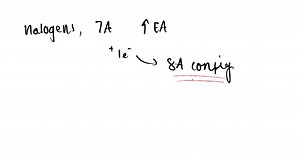 Halogens, 7A ↑ EA
+ 1e⁻ → 8A config